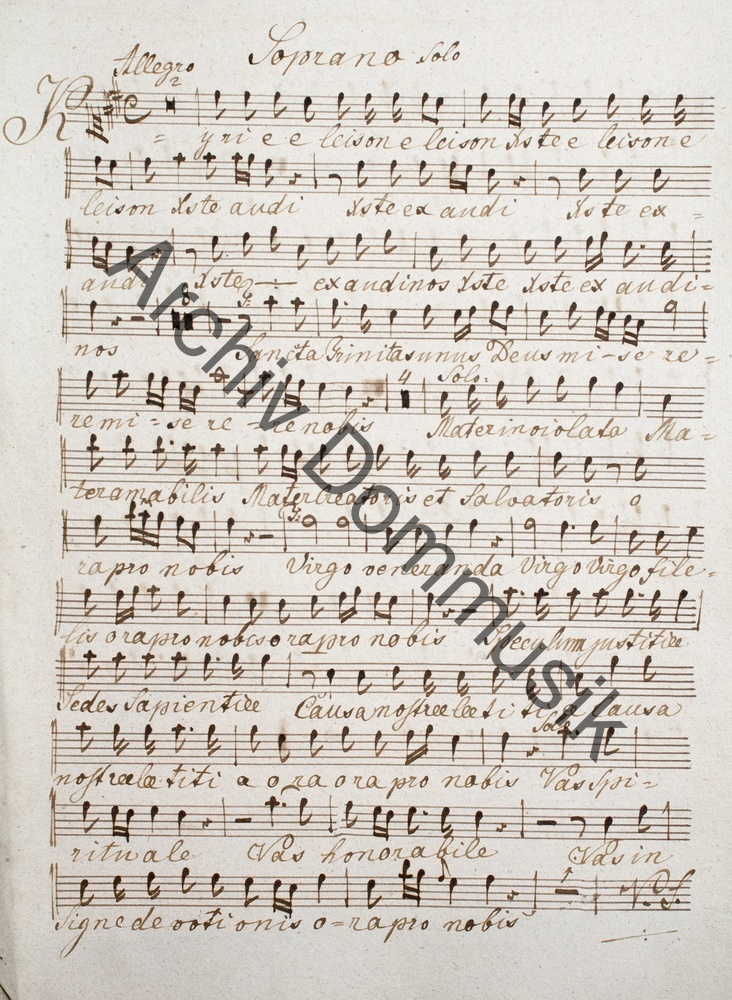 Soprano Solo
Allegro
2
Kyrie e leison e leison Xste e leison e
leison Xste audi Xste ex audi Xste ex =
audi Xste ex audi nos Xste Xste ex audi =
8
nos Sancta Trinitas unus Deus mi - se re =
4 Solo.
re mi - se re - re nobis Mater inviolata Ma =
ter amabilis Mater Creatoris et Salvatoris o
ra pro nobis Virgo veneranda Virgo Virgo fide =
lis ora pro nobis ora pro nobis Speculum justitiae
Sedes Sapientiae Causa nostrae laetitiae Causa
Solo
nostrae laetiti a o ra ora pro nobis Vas Spi =
rituale Vas honorabile Vas in
V. S.
signe devotionis o = ra pro nobis
Archiv Dommusik